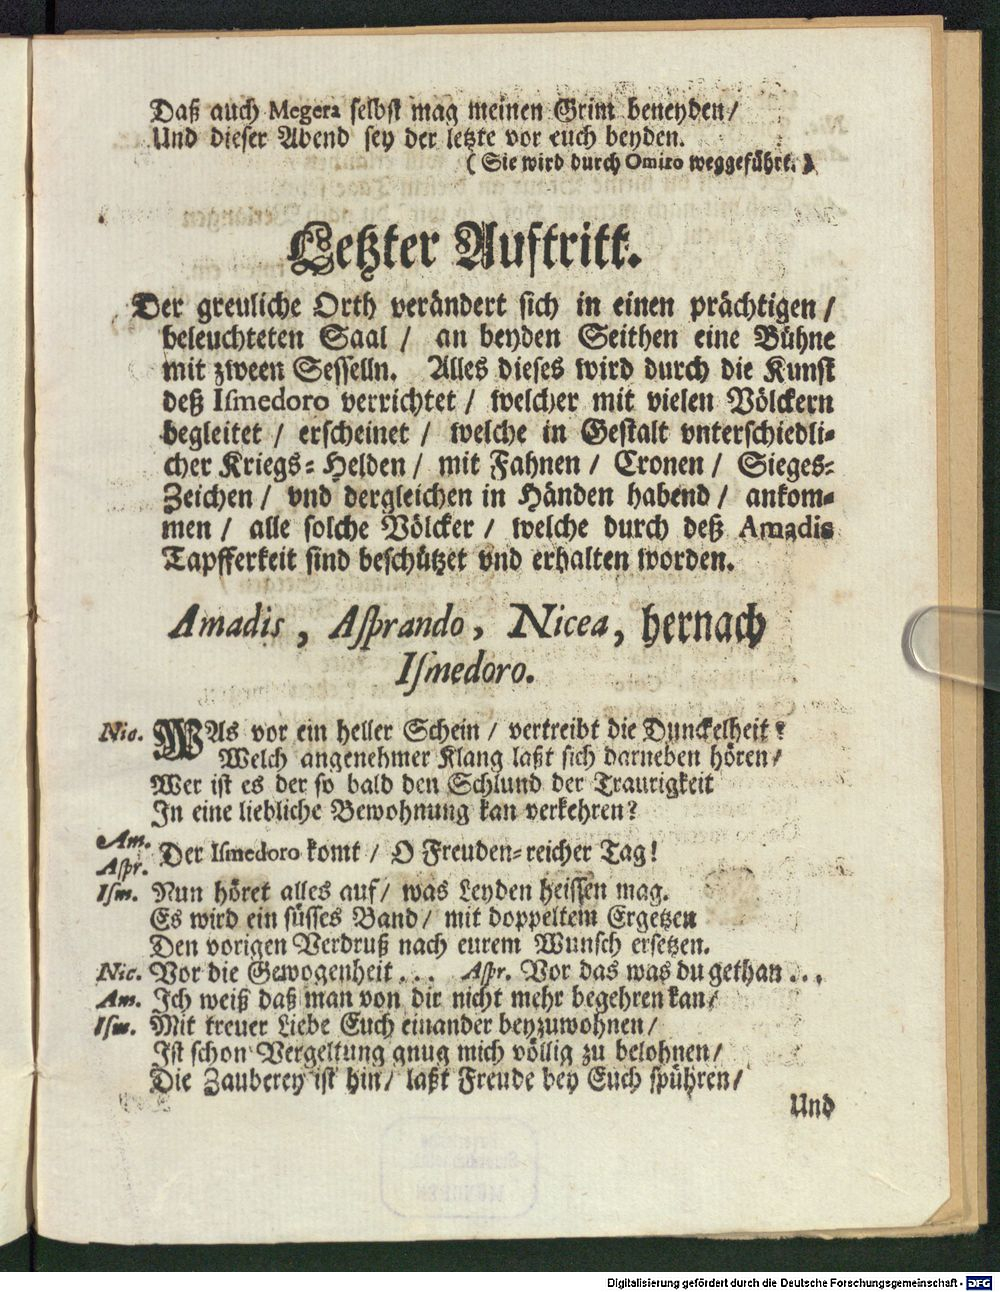 Daß auch Megera selbst mag meinen Grim beneyden/
Und dieser Abend sey der letzte vor euch beyden.
( Sie wird durch Omiro weggeführt. )
Letzter Auftritt.
Der greuliche Orth verändert sich in einen prächtigen /
beleuchteten Saal / an beyden Seithen eine Bühne
mit zween Sesselln. Alles dieses wird durch die Kunst
deß Iſmedoro verrichtet / welcher mit vielen Völckern
begleitet / erscheinet / welche in Gestalt vnterschiedli-
cher Kriegs-Helden / mit Fahnen / Cronen / Sieges-
Zeichen / vnd dergleichen in Händen habend / ankom-
men / alle solche Völcker / welche durch deß Amadis
Tapfferkeit sind beschützet vnd erhalten worden.
Amadis, Aſprando, Nicea, hernach
Iſmedoro.
Nic. WAs vor ein heller Schein / vertreibt die Dunckelheit?
Welch angenehmer Klang laßt sich darneben hören/
Wer ist es der so bald den Schlund der Traurigkeit
In eine liebliche Bewohnung kan verkehren?
Am.
Aſpr. Der Iſmedoro komt / O Freuden-reicher Tag!
Iſm. Nun höret alles auf/ was Leyden heissen mag.
Es wird ein süsses Band/ mit doppeltem Ergetzen
Den vorigen Verdruß nach eurem Wunsch ersetzen.
Nic. Vor die Gewogenheit... Aſpr. Vor das was du gethan...
Am. Ich weiß daß man von dir nicht mehr begehren kan/
Iſm. Mit treuer Liebe Euch einander beyzuwohnen/
Ist schon Vergeltung gnug mich völlig zu belohnen/
Die Zauberey ist hin/ laßt Freude bey Euch spühren/
Und
Digitalisierung gefördert durch die Deutsche Forschungsgemeinschaft - DFG